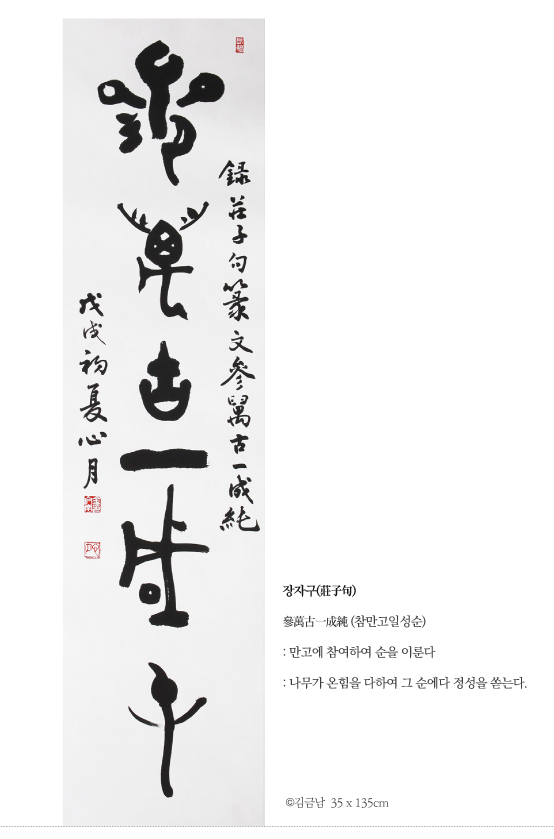 參萬古一成純
録莊子句篆文參萬古一成純
戊戌初夏心月
장자구(莊子句)
參萬古一成純 (참만고일성순)
: 만고에 참여하여 순을 이룬다
: 나무가 온힘을 다하여 그 순에다 정성을 쏟는다.
©김금남 35 x 135cm